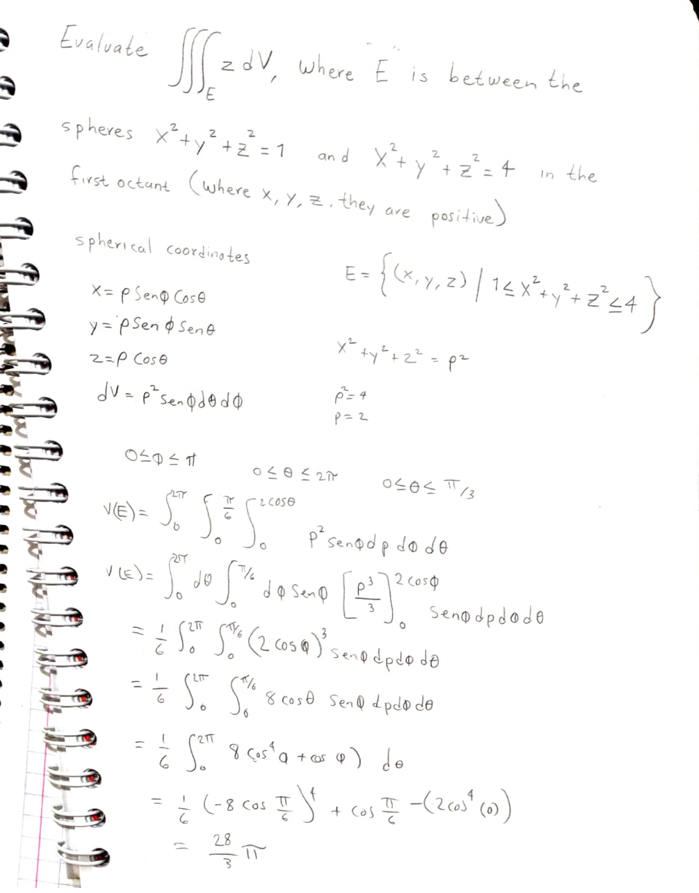 Evaluate ∭_E z dV, where E is between the
spheres x²+y²+z²=1 and x²+y²+z²=4 in the
first octant (where x, y, z. they are positive)
spherical coordinotes
E = {(x,y,z) | 1≤x²+y²+z²≤4}
x=ρ Senϕ Cosθ
y=ρSen ϕ Senθ
z=ρ Cosθ
dV = ρ² senϕdθdϕ
x²+y²+z² = ρ²
ρ²=4
ρ=2
0≤ϕ≤π 0≤θ≤2π 0≤θ≤π/3
V(E)= ∫₀^2π ∫₀^π/6 ∫₀^2cosθ ρ² senϕdρ dϕ dθ
V(E)= ∫₀^2π dθ ∫₀^π/6 dϕ senϕ [ρ³/3]₀^2cosϕ senϕdρdϕdθ
= 1/6 ∫₀^2π ∫₀^π/6 (2 cosϕ)³ senϕdρdϕ dθ
= 1/6 ∫₀^2π ∫₀^π/6 8 cosθ senϕ dρdϕ dθ
= 1/6 ∫₀^2π 8 cos⁴φ + cos φ) dθ
= 1/6 (-8 cos π/6)⁴ + cos π/6 -(2cos⁴(0))
= 28/3 π